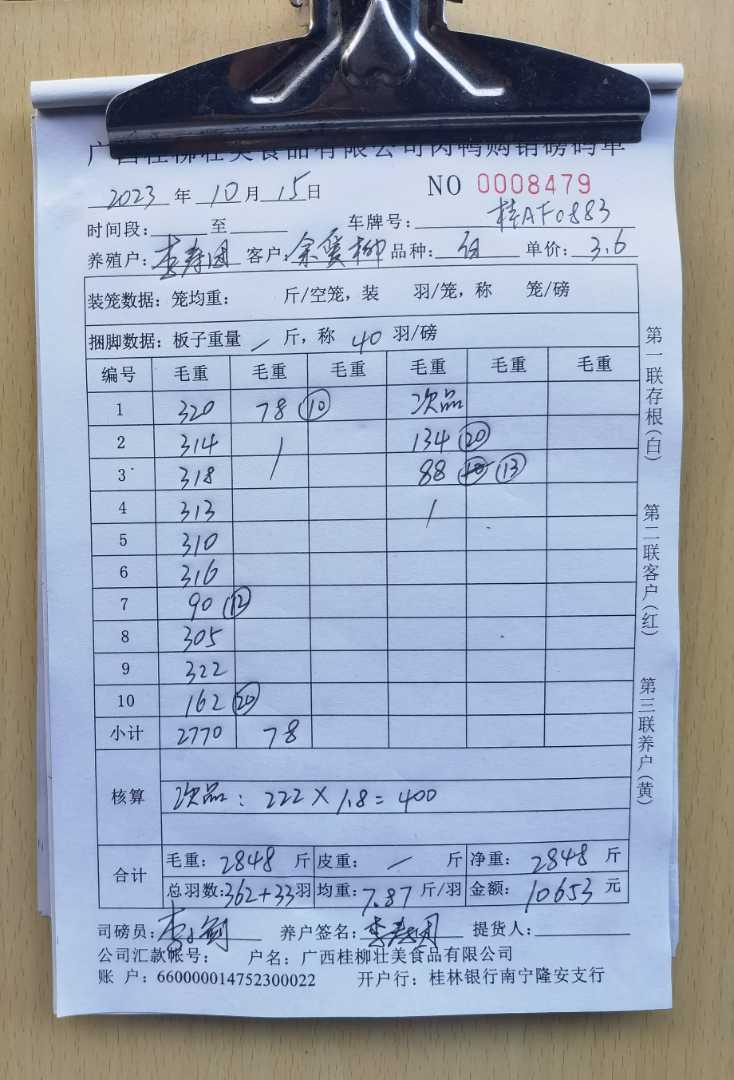 广西桂柳壮美食品有限公司肉鸭购销磅码单
2023 年 10 月 15 日 NO 0008479
时间段: 至 车牌号: 桂AF0883
养殖户: 李寿团 客户: 余爱柳 品种: 单价: 3.6
装笼数据: 笼均重: 斤/空笼, 装 羽/笼, 称 笼/磅
捆脚数据: 板子重量 / 斤, 称 40 羽/磅
编号 毛重 毛重 毛重 毛重 毛重 毛重
1 320 78 10 次品
2 314 / 134 20
3 318 88 13
4 313 /
5 310
6 316
7 90 12
8 305
9 322
10 162 20
小计 2770 78
核算 次品: 222×1.8=400
合计 毛重: 2848 斤 皮重: / 斤 净重: 2848 斤
总羽数: 362+33 羽 均重: 7.87 斤/羽 金额: 10653 元
司磅员: 养户签名: 李寿团 提货人:
公司汇款帐号: 户名: 广西桂柳壮美食品有限公司
账 户: 660000014752300022 开户行: 桂林银行南宁隆安支行
第一联存根(白)
第二联客户(红)
第三联养户(黄)